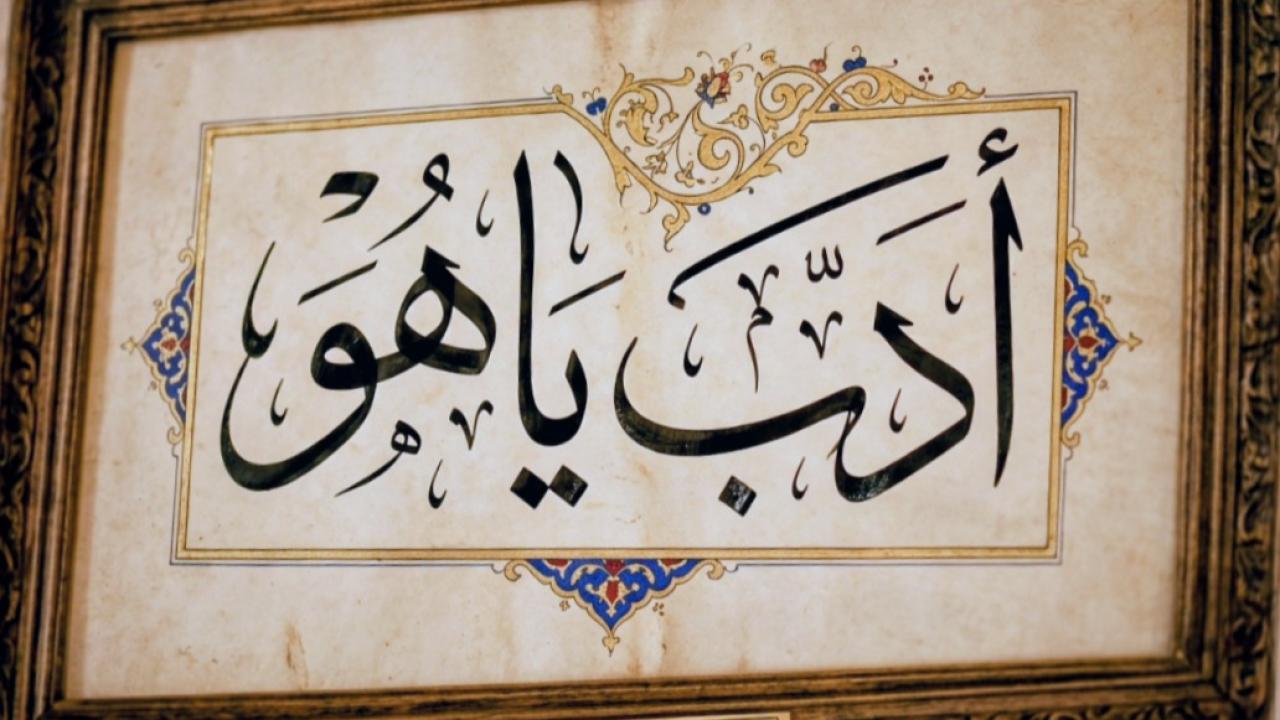 أَدَّبَ يَا هُوَ